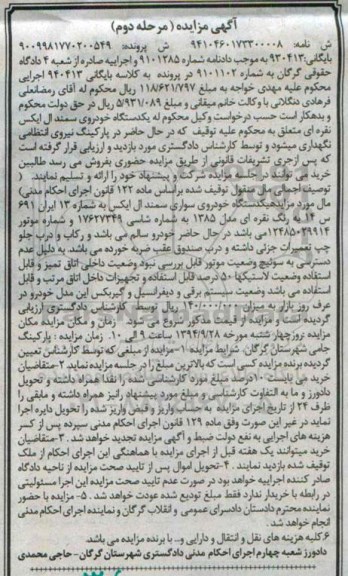 آگهی مزایده ( مرحله دوم)
ش نامه: ۹۴۱۰۴۶۰۱۷۳۳۰۰۰۰۸ ش پرونده: ۹۰۰۹۹۸۱۷۷۰۲۰۰۵۴۹
بایگانی:۹۳۰۴۱۳ به موجب دادنامه شماره ۹۱۰۱۲۸۵ و اجراییه صادره از شعبه ۴ دادگاه
حقوقی گرگان به شماره ۹۱۰۱۱۰۲ در پرونده به کلاسه بایگانی ۹۴۰۴۱۳ اجرایی
محکوم علیه مهدی خواجه به مبلغ ۱۱۸/۶۲۱/۷۹۷ ریال محکوم له آقای رمضانعلی
فرهادی دنگلانی با وکالت خانم میقانی و مبلغ ۵/۹۳۱/۰۸۹ ریال در حق دولت محکوم
و بدهکار است حسب درخواست وکیل محکوم له یکدستگاه خودروی سمند ال ایکس
نقره ای متعلق به محکوم علیه توقیف که در حال حاضر در پارکینگ نیروی انتظامی
نگهداری میشود و توسط کارشناس دادگستری مورد بازدید و ارزیابی قرار گرفته است
که پس ازجری تشریفات قانونی از طریق مزایده حضوری بفروش می رسد طالبین
خرید می توانند در جلسه مزایده شرکت و پیشنهاد خود را ارائه و تسلیم نمایند. (
توصیف اجمالی مال منقول توقیف شده براساس ماده ۱۲۲ قانون اجرای احکام مدنی)
مال مورد مزایده:یکدستگاه خودروی سواری سمند ال ایکس به شماره ۱۳ ایران ۶۹۱
س ۱۴ به رنگ نقره ای مدل ۱۳۸۵ به شماره شاسی ۱۷۶۲۷۳۴۹ و شماره موتور
۱۲۴۸۵۰۲۹۹۱۴می باشد در حال حاضر خودرو سالم می باشد و رکاب و درب جلو
چپ تعمیرات جزئی داشته و درب صندوق عقب ضربه خورده می باشد به دلیل عدم
دسترسی به سوئیچ وضعیت موتور قابل بررسی نبود وضعیت داخلی اتاق تمیز و قابل
استفاده وضعیت لاستیکها ۵۰ درصد قابل استفاده و تجهیزات داخل اتاق مرتب و قابل
استفاده می باشد وضعیت سیستم برقی و دیفرانسیل و گیربکس این مدل خودرو در
عرف روز بازار به میزان ۱۴۰/۰۰۰/۰۰۰ ریال توسط کارشناس دادگستری ارزیابی
گردیده است و مزایده از قیمت مذکور شروع می شود. زمان و مکان مزایده مکان
مزایده :روزچهار شنبه مورخه ۱۳۹۴/۹/۲۸ ساعت ۹ الی ۱۰. زمان مزایده : پارکینگ
جامی شهرستان گرگان. شرایط مزایده ۱-مزایده از مبلغی که توسط کارشناس تعیین
گردیده برنده مزایده کسی است که بالاترین مبلغ را در جلسه مزایده نماید ۲-متقاضیان
خرید می بایست ۱۰درصد مبلغ مورد کارشناسی شده را نقدا همراه داشته و تحویل
دادورز و ما به التفاوت کارشناسی و مبلغ مورد پیشنهاد رانیز همراه داشته و مابقی را
ظرف ۲۴ از تاریخ اجرای مزایده به حساب واریز و فیش واریز شده را تحویل دایره اجرا
نماید در غیر این صورت وفق ماده ۱۲۹ قانون اجرای احکام مدنی سپرده پس از کسر
هزینه های اجرایی به نفع دولت ضبط و آگهی مزایده تجدید خواهد شد . ۳-متقاضیان
خرید میتوانند یک هفته قبل از اجرای مزایده با هماهنگی این اجرای احکام از ملک
توقیف شده بازدید نمایند . ۴-تحویل اموال پس از تایید صحت مزایده از ناحیه دادگاه
صادر کننده اجراییه خواهد بود در صورت عدم تایید صحت مزایده این اجرا مسئولیتی
در رابطه با خریدار ندارد فقط مبلغ تودیع شده عودت خواهد شد. ۵- مزایده با حضور
نماینده محترم دادستان دادسرای عمومی و انقلاب گرگان و نماینده اجرای احکام مدنی
انجام خواهد شد.
۶ کلیه هزینه های نقل و انتقال و دارایی و.. با برنده مزایده می باشد.
دادورز شعبه چهارم اجرای احکام مدنی دادگستری شهرستان گرگان - حاجی محمدی